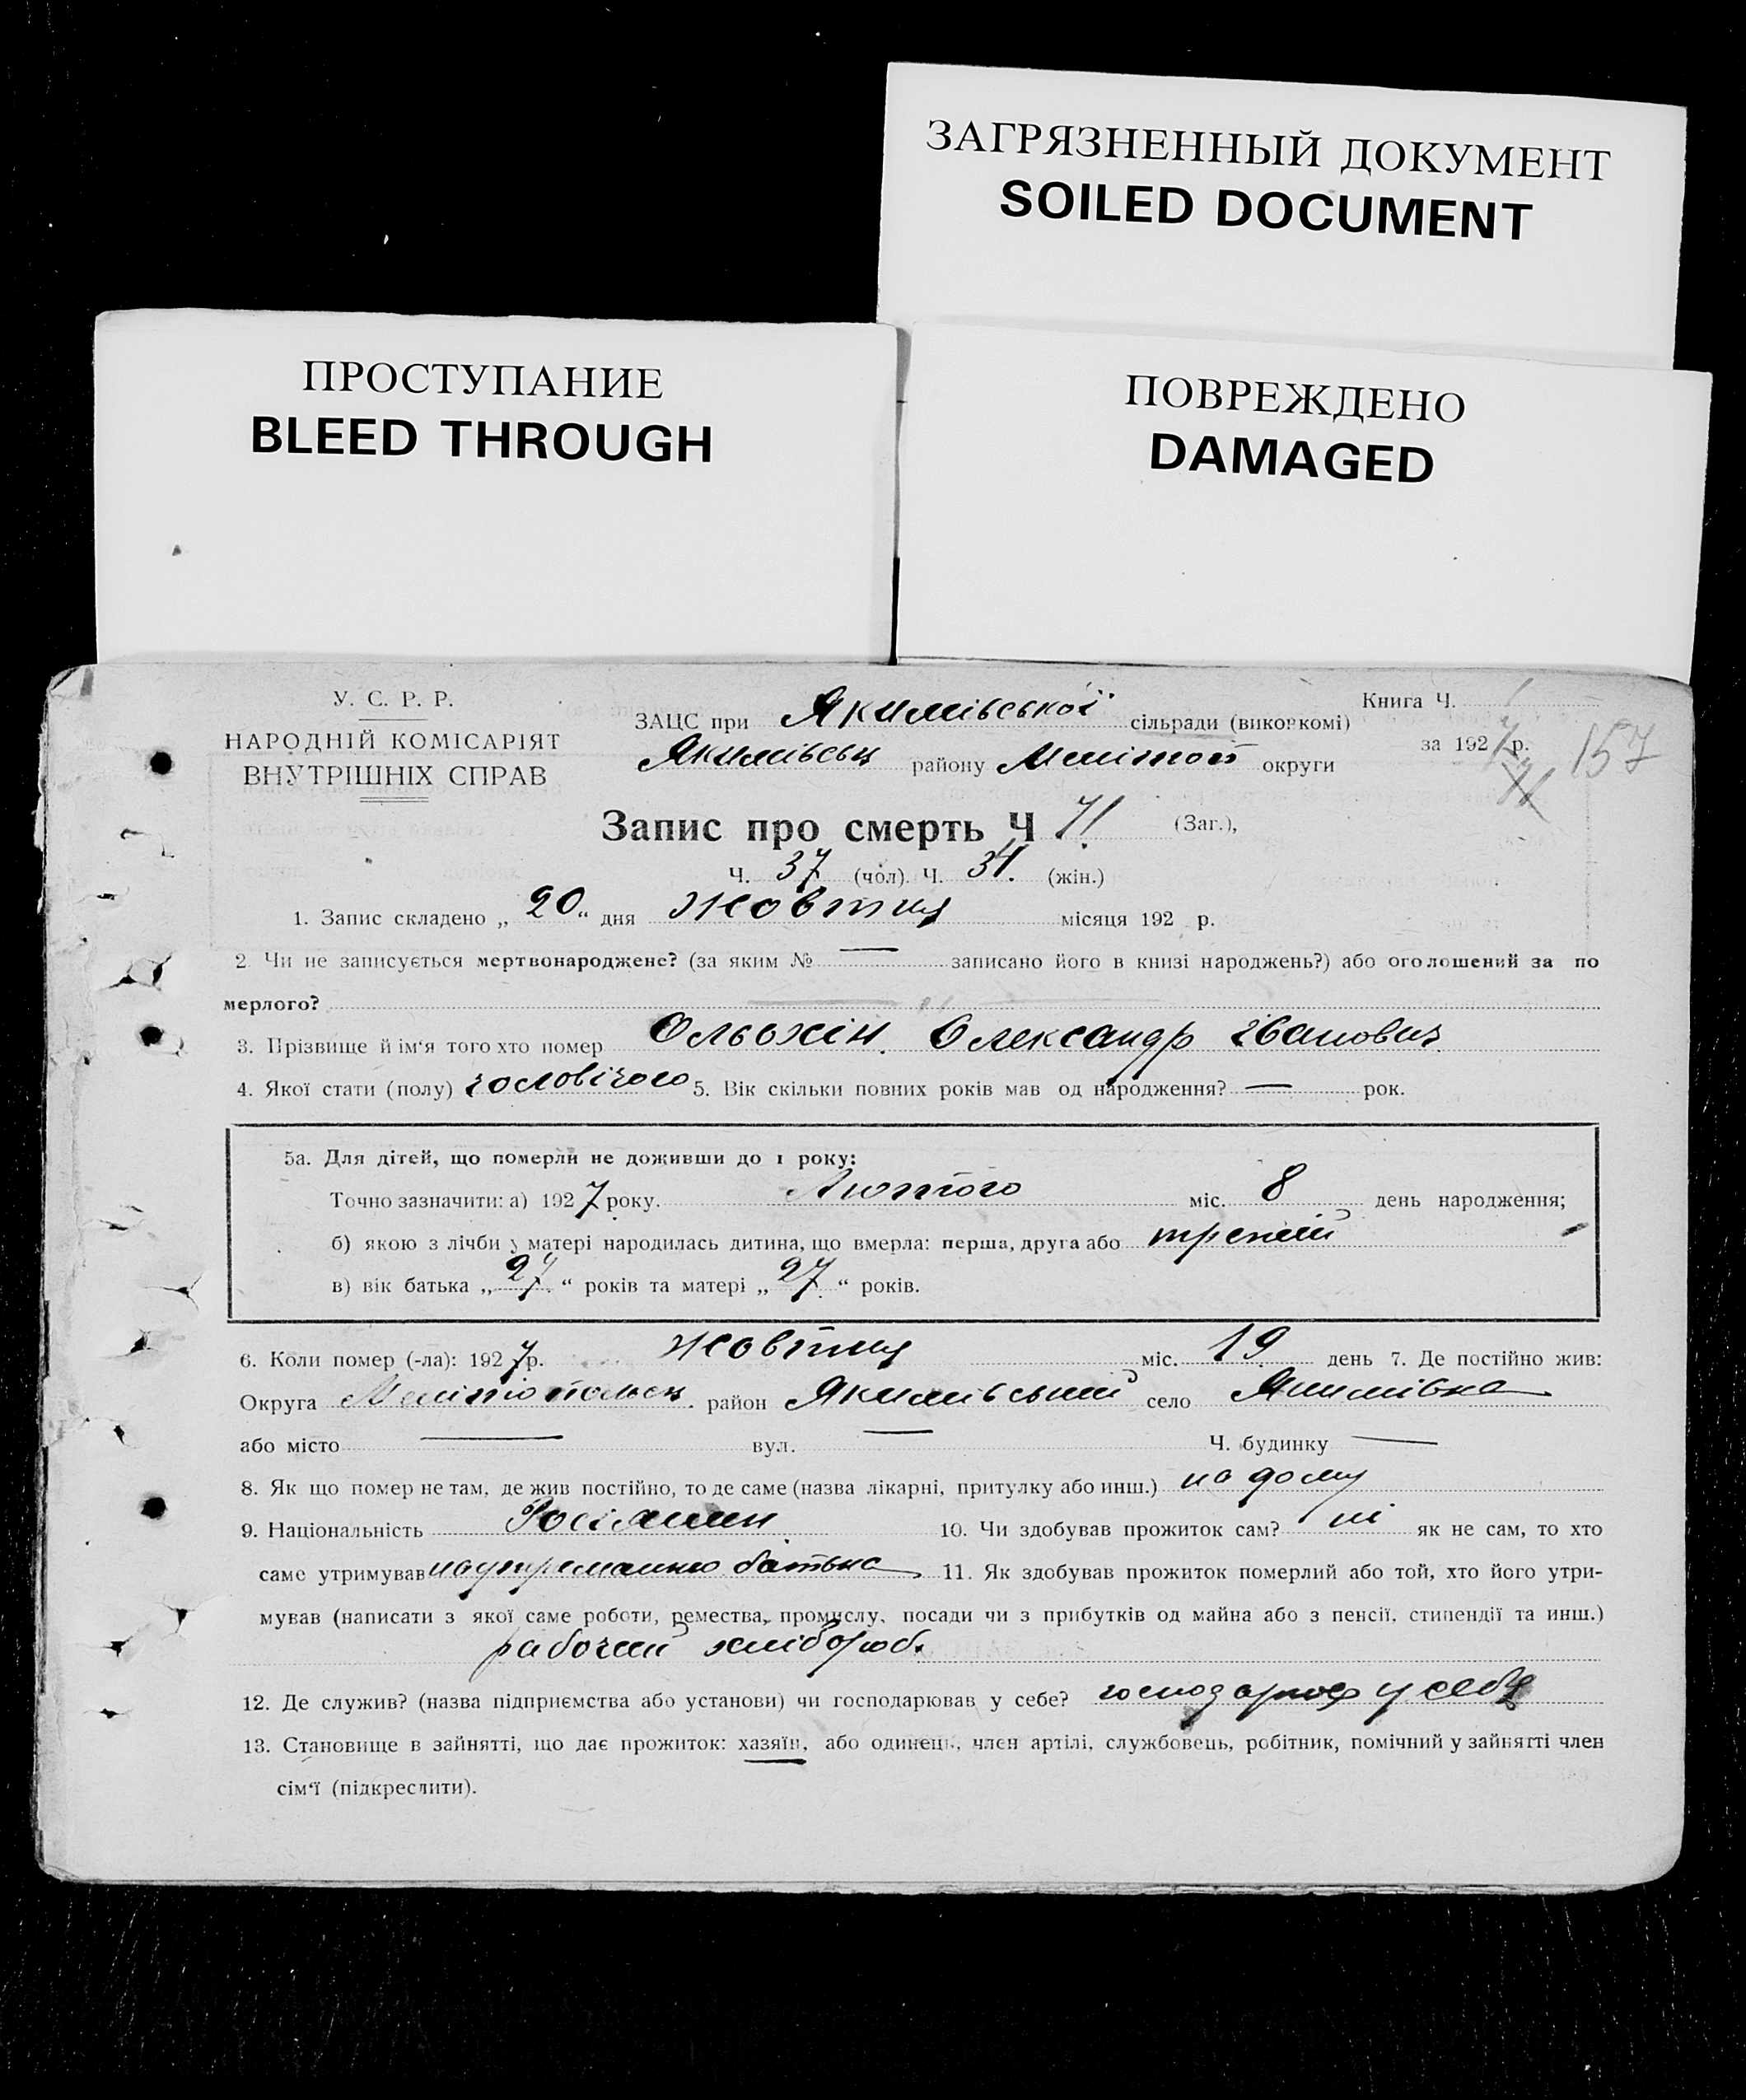 ЗАГРЯЗНЕННЫЙ ДОКУМЕНТ
SOILED DOCUMENT
ПРОСТУПАНИЕ
BLEED THROUGH
ПОВРЕЖДЕНО
DAMAGED
У. С. Р. Р.
НАРОДНІЙ КОМІСАРІЯТ
ВНУТРІШНІХ СПРАВ
ЗАЦС при Якимівської сільради (викоркомі)
Якимівськ району Мелітоп округи
Книга Ч. 1
за 1927 р.
157
Запис про смерть Ч 71 (Заг.),
Ч. 37 (чол). Ч. 34. (жін.)
1. Запис складено „ 20 “ дня Жовтня місяця 192 р.
2 Чи не записується мертвонароджене? (за яким № — записано його в книзі народжень?) або оголошений за по
мерлого?
3. Прізвище й ім‘я того хто помер Ольохін. Олександр Іванович
4. Якої стати (полу) чоловічого 5. Вік скільки повних років мав од народження? — рок.
5а. Для дітей, що померли не доживши до 1 року:
Точно зазначити: а) 1927 року. Лютого міс. 8 день народження;
б) якою з лічби у матері народилась дитина, що вмерла: перша, друга або третій
в) вік батька „ 27 “ років та матері „ 27 “ років.
6. Коли помер (-ла): 1927 р. Жовтня міс. 19 день 7. Де постійно жив:
Округа Мелітопольськ. район Якимівський село Якимівка
або місто — вул. — Ч. будинку —
8. Як що помер не там, де жив постійно, то де саме (назва лікарні, притулку або инш.) на дому
9. Національність Росіянин 10. Чи здобував прожиток сам? ні як не сам, то хто
саме утримував наутриманню батька 11. Як здобував прожиток померлий або той, хто його утри-
мував (написати з якої саме роботи, ремества, промислу, посади чи з прибутків од майна або з пенсії, стипендії та инш.)
рабочий хлібороб.
12. Де служив? (назва підприємства або установи) чи господарював у себе? господарює у себе
13. Становище в зайнятті, що дає прожиток: хазяїн, або одинець, член артілі, службовець, робітник, помічний у зайнятті член
сім‘ї (підкреслити).